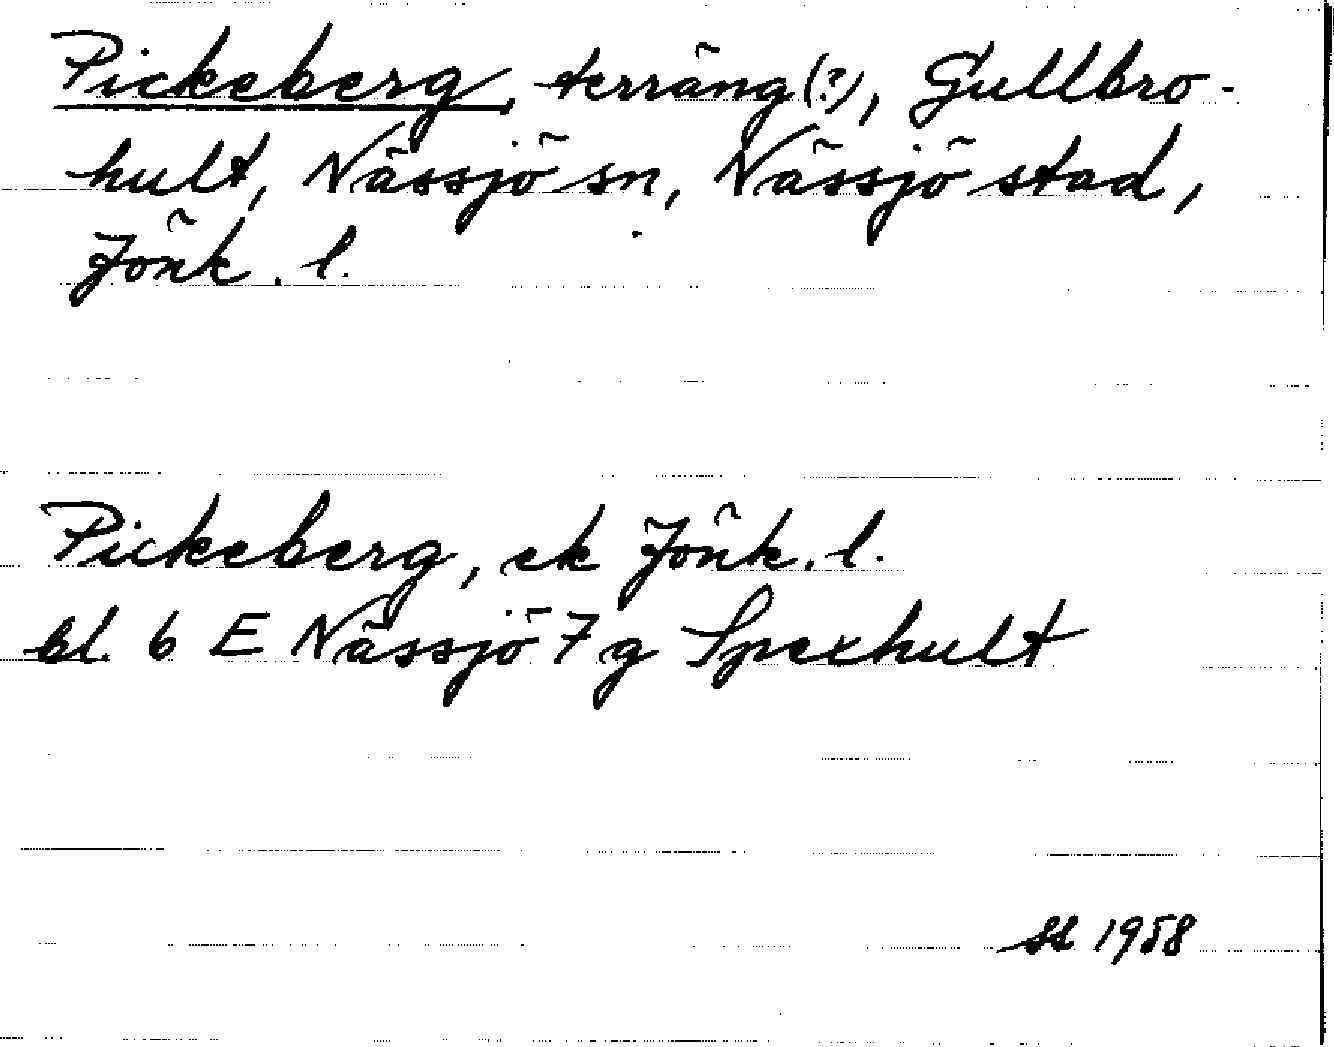 Pickeberg, terräng(?), Gullbro-
hult, Nässjö sn, Nässjö stad,
Jönk. l.
Pickeberg, ek Jönk. l.
bl. 6 E Nässjö 7 g Spexhult
1958